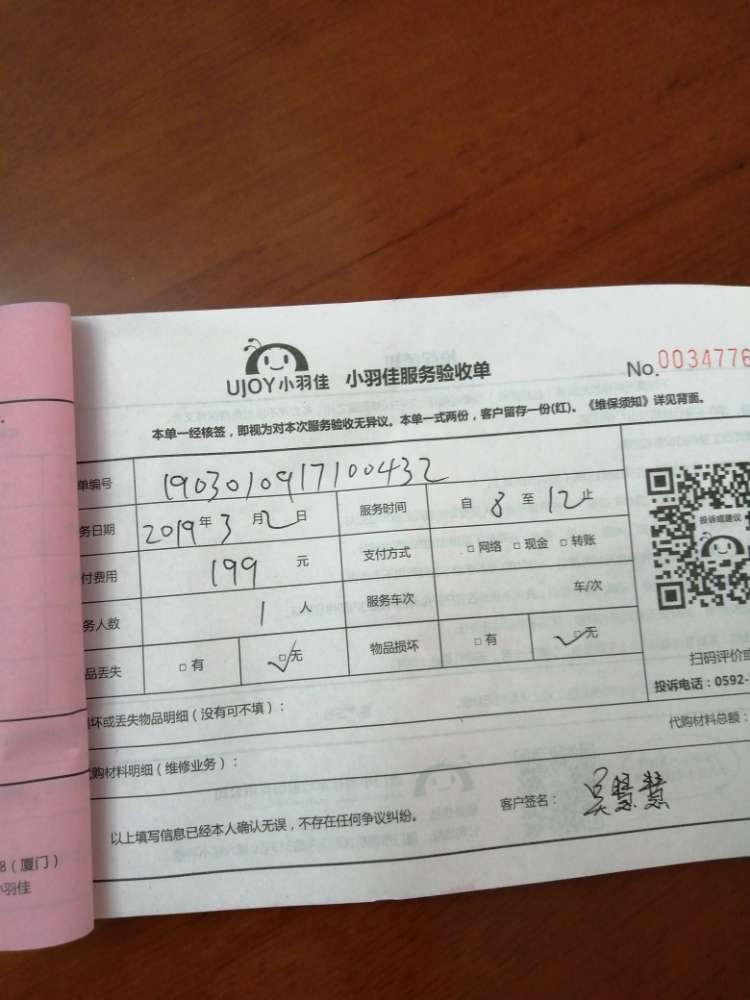 UJOY小羽佳 小羽佳服务验收单 No.0034776
本单一经核签，即视为对本次服务验收无异议。本单一式两份，客户留存一份(红)。《维保须知》详见背面。
单编号 1903010917100432
务日期 2019年3月2日 服务时间 自8至12止
付费用 199元 支付方式 □网络 □现金 □转账
务人数 1人 服务车次 车/次
品丢失 □有 ☑无 物品损坏 □有 ☑无
投诉或建议
扫码评价或
投诉电话：0592-
损坏或丢失物品明细（没有可不填）：
代购材料总额：
代购材料明细（维修业务）：
以上填写信息已经本人确认无误，不存在任何争议纠纷。 客户签名：吴慧慧
8（厦门）
小羽佳